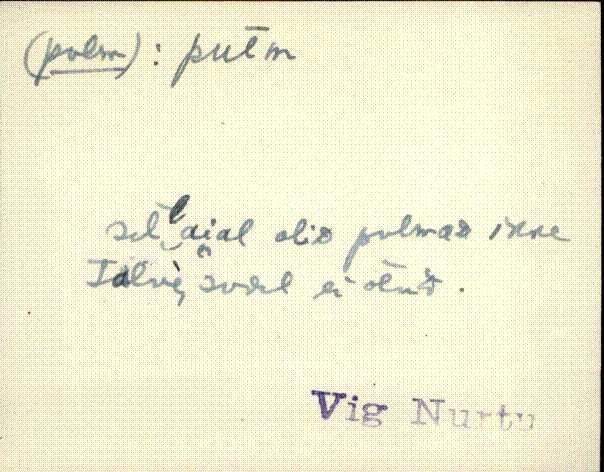 (pulm): pułm
sel aial olid pulmad ikke
Talve, suvel ei olnd.
Vig Nurtu